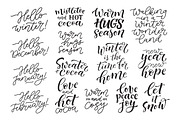 Hello
winter!
Hello
december!
Hello
january!
Hello
february!
Mistletoe
AND HOT
COCOA
Sweater
&
cocoa
love
&
hot
cocoa
Warm
HUGS
season
Winter
is the
time for
home
warm
and
cozy
love
peace
joy
walking
in a
winter
wonder
land
new
year
new
hope
let
it
snow